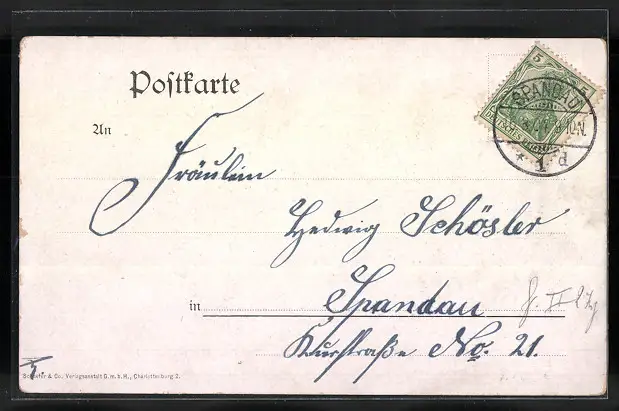 Postkarte
5 5
SPANDAU
10-N.
* 1 d
An
Fräulein
Hedwig Schösler
in Spandau
Kurstraße No. 21.
Schäfer & Co., Verlagsanstalt G.m.b.H., Charlottenburg 2.